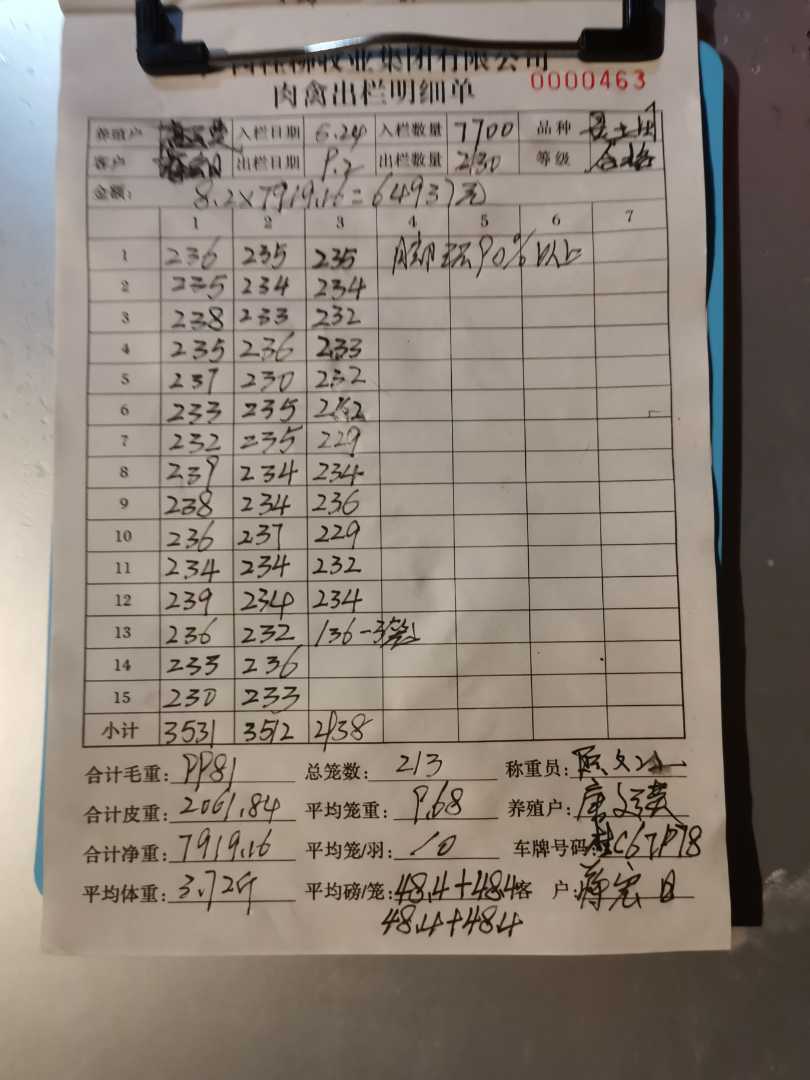 牧业集团有限公司
肉禽出栏明细单 0000463
养殖户 入栏日期 6.24 入栏数量 7700 品种
客户 出栏日期 9.2 出栏数量 2130 等级 合格
金额: 8.2×7919.16=64937元
1 2 3 4 5 6 7
1 236 235 235 90%以上
2 235 234 234
3 238 233 232
4 235 236 233
5 237 230 232
6 233 235
7 232 235 229
8 239 234 234
9 238 234 236
10 236 237 229
11 234 234 232
12 239 234 234
13 236 232 136-3
14 233 236
15 230 233
小计 3531 3512 2938
合计毛重: 9981 总笼数: 213 称重员:
合计皮重: 2061.84 平均笼重: 9.68 养殖户:
合计净重: 7919.16 平均笼/羽: 10 车牌号码:
平均体重: 3.72斤 平均磅/笼: 48.4+48.4 客 户:
48.4+48.4